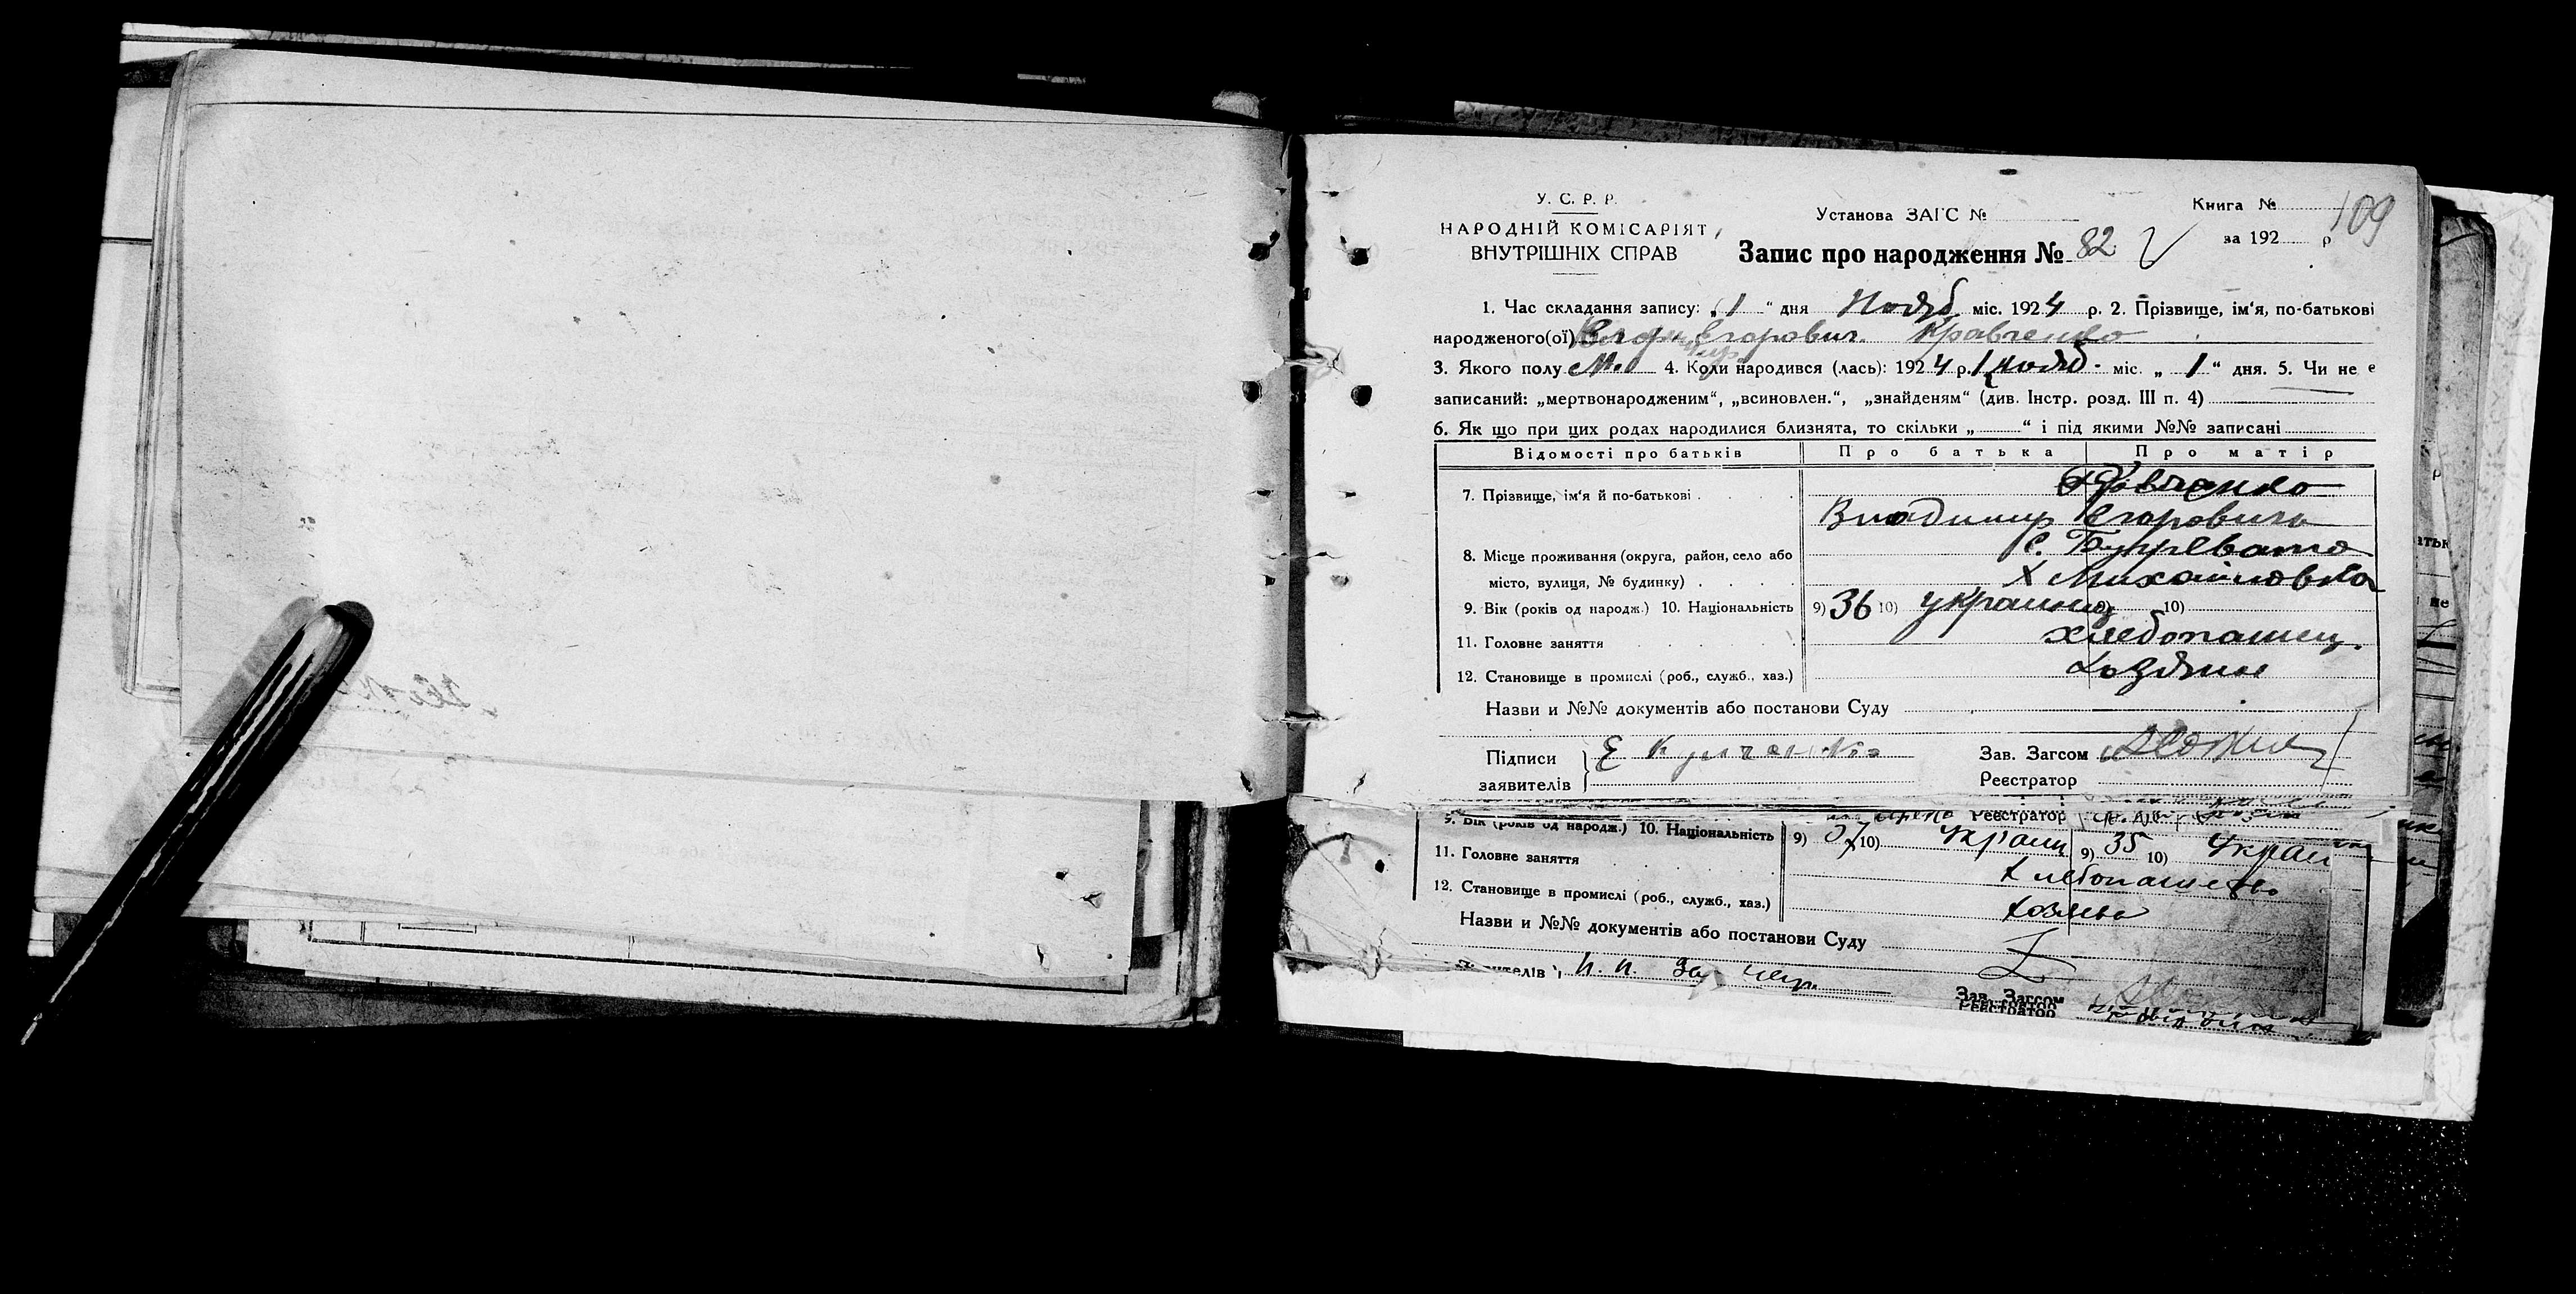 У. С. Р. Р.
НАРОДНІЙ КОМІСАРІЯТ
ВНУТРІШНІХ СПРАВ
Установа ЗАГС №
Книга №
109
Запис про народження № 82
за 192 р
1. Час складання запису: „1“ дня Нояб. міс. 1924 р. 2. Прізвище, ім‘я, по-батькові
народженого(ої) Егорович. Кравченко
3. Якого полу М. 4. Коли народився (лась): 1924 р. 1 нояб. міс. „1“ дня. 5. Чи не є
записаний: „мертвонародженим“, „всиновлен.“, „знайденям“ (див. Інстр. розд. III п. 4)
6. Як що при цих родах народилися близнята, то скільки „ “ і під якими №№ записані
Відомості про батьків Про батька Про матір
7. Прізвище, ім‘я й по-батькові
Владимир Егорович
8. Місце проживання (округа, район, село або
місто, вулиця, № будинку) х Михайловка
9. Вік (років од народж.) 10. Національність 9) 36 10) украинец 10)
11. Головне заняття хлебопашец.
12. Становище в промислі (роб., служб., хаз.) хозяин
Назви и №№ документів або постанови Суду
Підписи
заявителів
Зав. Загсом
Реєстратор
Реєстратор
9. Вік (років од народж.) 10. Національність 9) 37 10) Украин 9) 35 10) Украин
11. Головне заняття Хлебопашество
12. Становище в промислі (роб., служб., хаз.) хозяева
Назви и №№ документів або постанови Суду
Зав. Загсом
Реєстратор